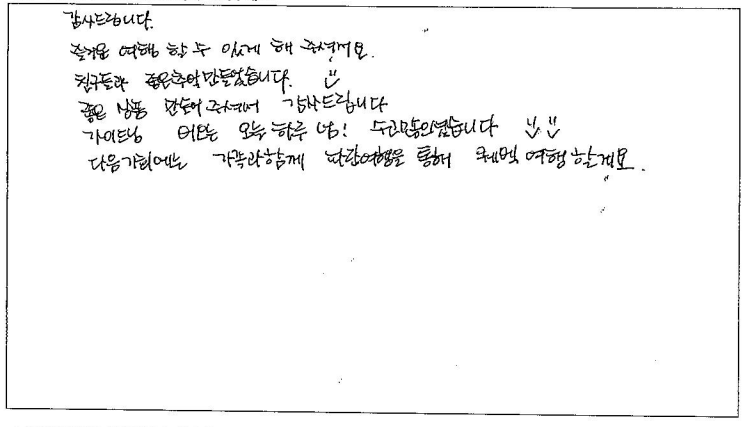 감사드립니다.
즐거운 여행 할 수 있게 해 주셨어요.
친구들과 좋은추억만들었습니다. ㅎ
좋은 상품 만들어 주셔서 감사드립니다
가이드님 오늘 하루 수고많으셨습니다
다음기회에는 가족과함께 파란여행을 통해 퀘벡 여행할게요.